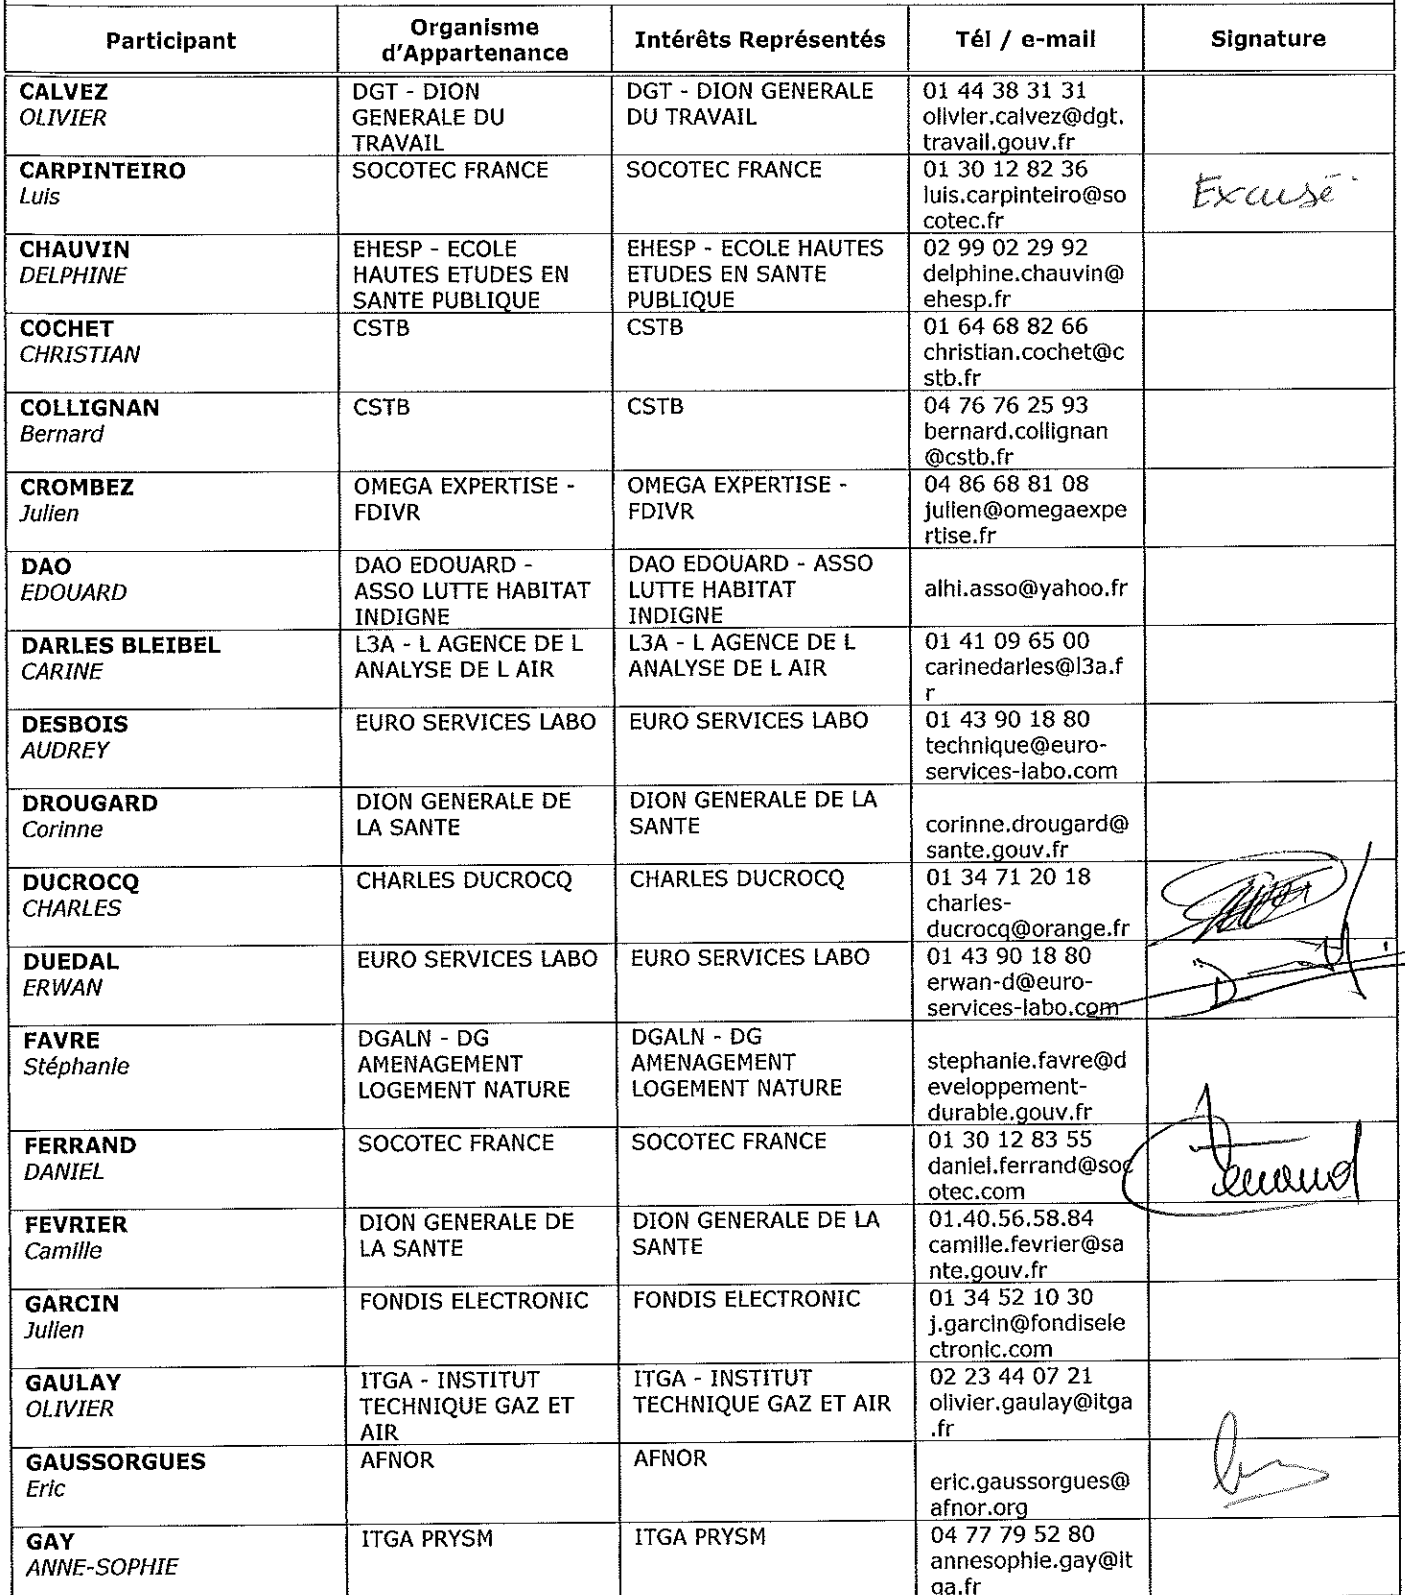 Participant
Organisme
d'Appartenance
Intérêts Représentés
Tél / e-mail
Signature
CALVEZ
OLIVIER
DGT - DION
GENERALE DU
TRAVAIL
DGT - DION GENERALE
DU TRAVAIL
01 44 38 31 31
olivier.calvez@dgt.
travail.gouv.fr
CARPINTEIRO
Luis
SOCOTEC FRANCE
SOCOTEC FRANCE
01 30 12 82 36
luis.carpinteiro@so
cotec.fr
Excusé
CHAUVIN
DELPHINE
EHESP - ECOLE
HAUTES ETUDES EN
SANTE PUBLIQUE
EHESP - ECOLE HAUTES
ETUDES EN SANTE
PUBLIQUE
02 99 02 29 92
delphine.chauvin@
ehesp.fr
COCHET
CHRISTIAN
CSTB
CSTB
01 64 68 82 66
christian.cochet@c
stb.fr
COLLIGNAN
Bernard
CSTB
CSTB
04 76 76 25 93
bernard.collignan
@cstb.fr
CROMBEZ
Julien
OMEGA EXPERTISE -
FDIVR
OMEGA EXPERTISE -
FDIVR
04 86 68 81 08
julien@omegaexpe
rtise.fr
DAO
EDOUARD
DAO EDOUARD -
ASSO LUTTE HABITAT
INDIGNE
DAO EDOUARD - ASSO
LUTTE HABITAT
INDIGNE
alhi.asso@yahoo.fr
DARLES BLEIBEL
CARINE
L3A - L AGENCE DE L
ANALYSE DE L AIR
L3A - L AGENCE DE L
ANALYSE DE L AIR
01 41 09 65 00
carinedarles@l3a.f
r
DESBOIS
AUDREY
EURO SERVICES LABO
EURO SERVICES LABO
01 43 90 18 80
technique@euro-
services-labo.com
DROUGARD
Corinne
DION GENERALE DE
LA SANTE
DION GENERALE DE LA
SANTE
corinne.drougard@
sante.gouv.fr
DUCROCQ
CHARLES
CHARLES DUCROCQ
CHARLES DUCROCQ
01 34 71 20 18
charles-
ducrocq@orange.fr
DUEDAL
ERWAN
EURO SERVICES LABO
EURO SERVICES LABO
01 43 90 18 80
erwan-d@euro-
services-labo.com
FAVRE
Stéphanie
DGALN - DG
AMENAGEMENT
LOGEMENT NATURE
DGALN - DG
AMENAGEMENT
LOGEMENT NATURE
stephanie.favre@d
eveloppement-
durable.gouv.fr
FERRAND
DANIEL
SOCOTEC FRANCE
SOCOTEC FRANCE
01 30 12 83 55
daniel.ferrand@soc
otec.com
FEVRIER
Camille
DION GENERALE DE
LA SANTE
DION GENERALE DE LA
SANTE
01.40.56.58.84
camille.fevrier@sa
nte.gouv.fr
GARCIN
Julien
FONDIS ELECTRONIC
FONDIS ELECTRONIC
01 34 52 10 30
j.garcin@fondisele
ctronic.com
GAULAY
OLIVIER
ITGA - INSTITUT
TECHNIQUE GAZ ET
AIR
ITGA - INSTITUT
TECHNIQUE GAZ ET AIR
02 23 44 07 21
olivier.gaulay@itga
.fr
GAUSSORGUES
Eric
AFNOR
AFNOR
eric.gaussorgues@
afnor.org
GAY
ANNE-SOPHIE
ITGA PRYSM
ITGA PRYSM
04 77 79 52 80
annesophie.gay@it
ga.fr